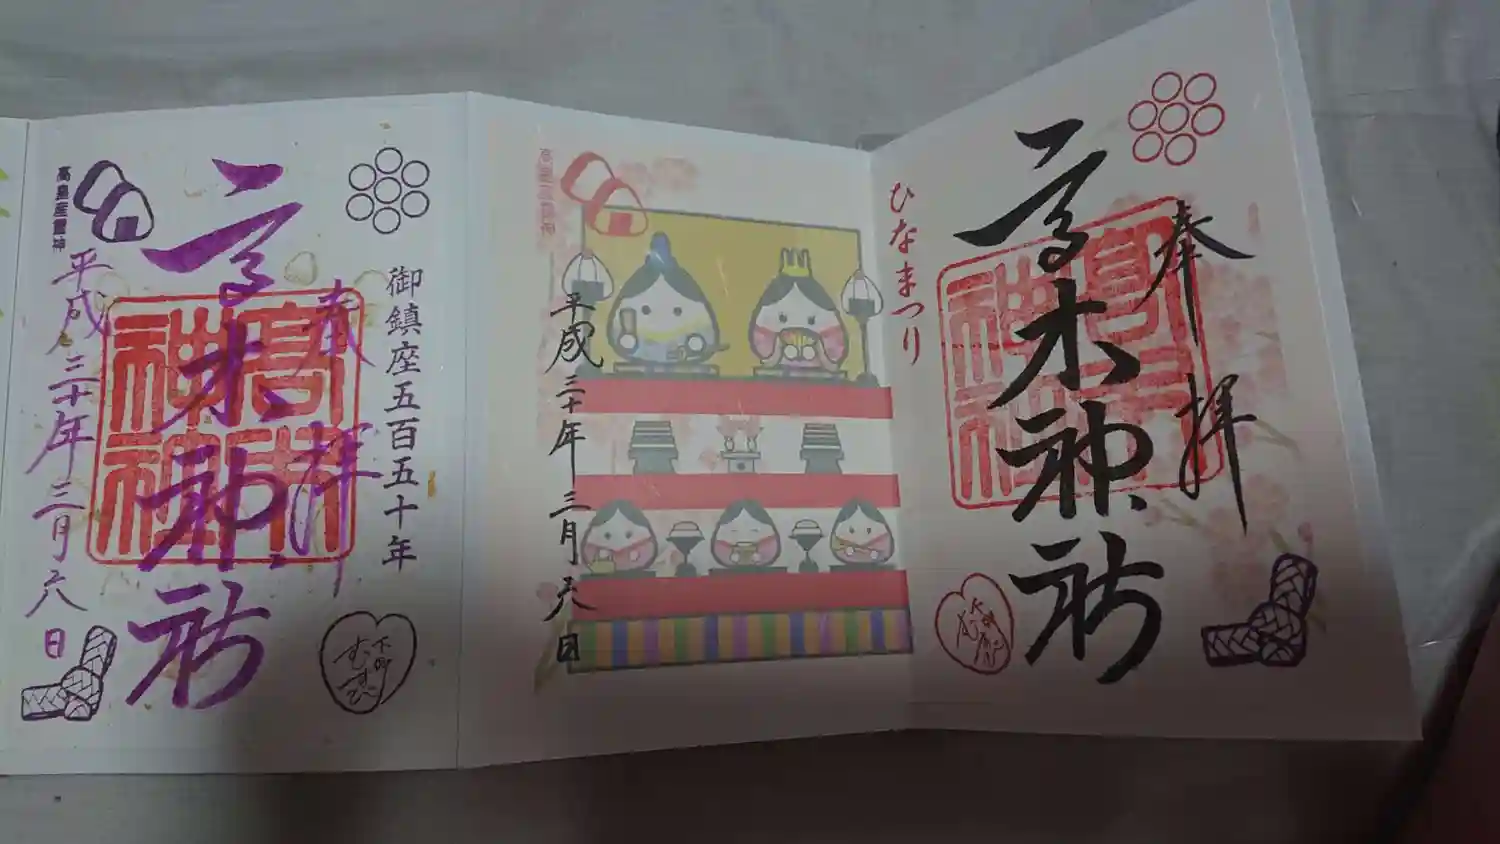 奉拝
高木神社
高木神社
ひなまつり
平成三十年三月六日
御鎮座五百五十年
奉拝
高木神社
高木神社
平成三十年三月六日
高皇産霊神
むすび